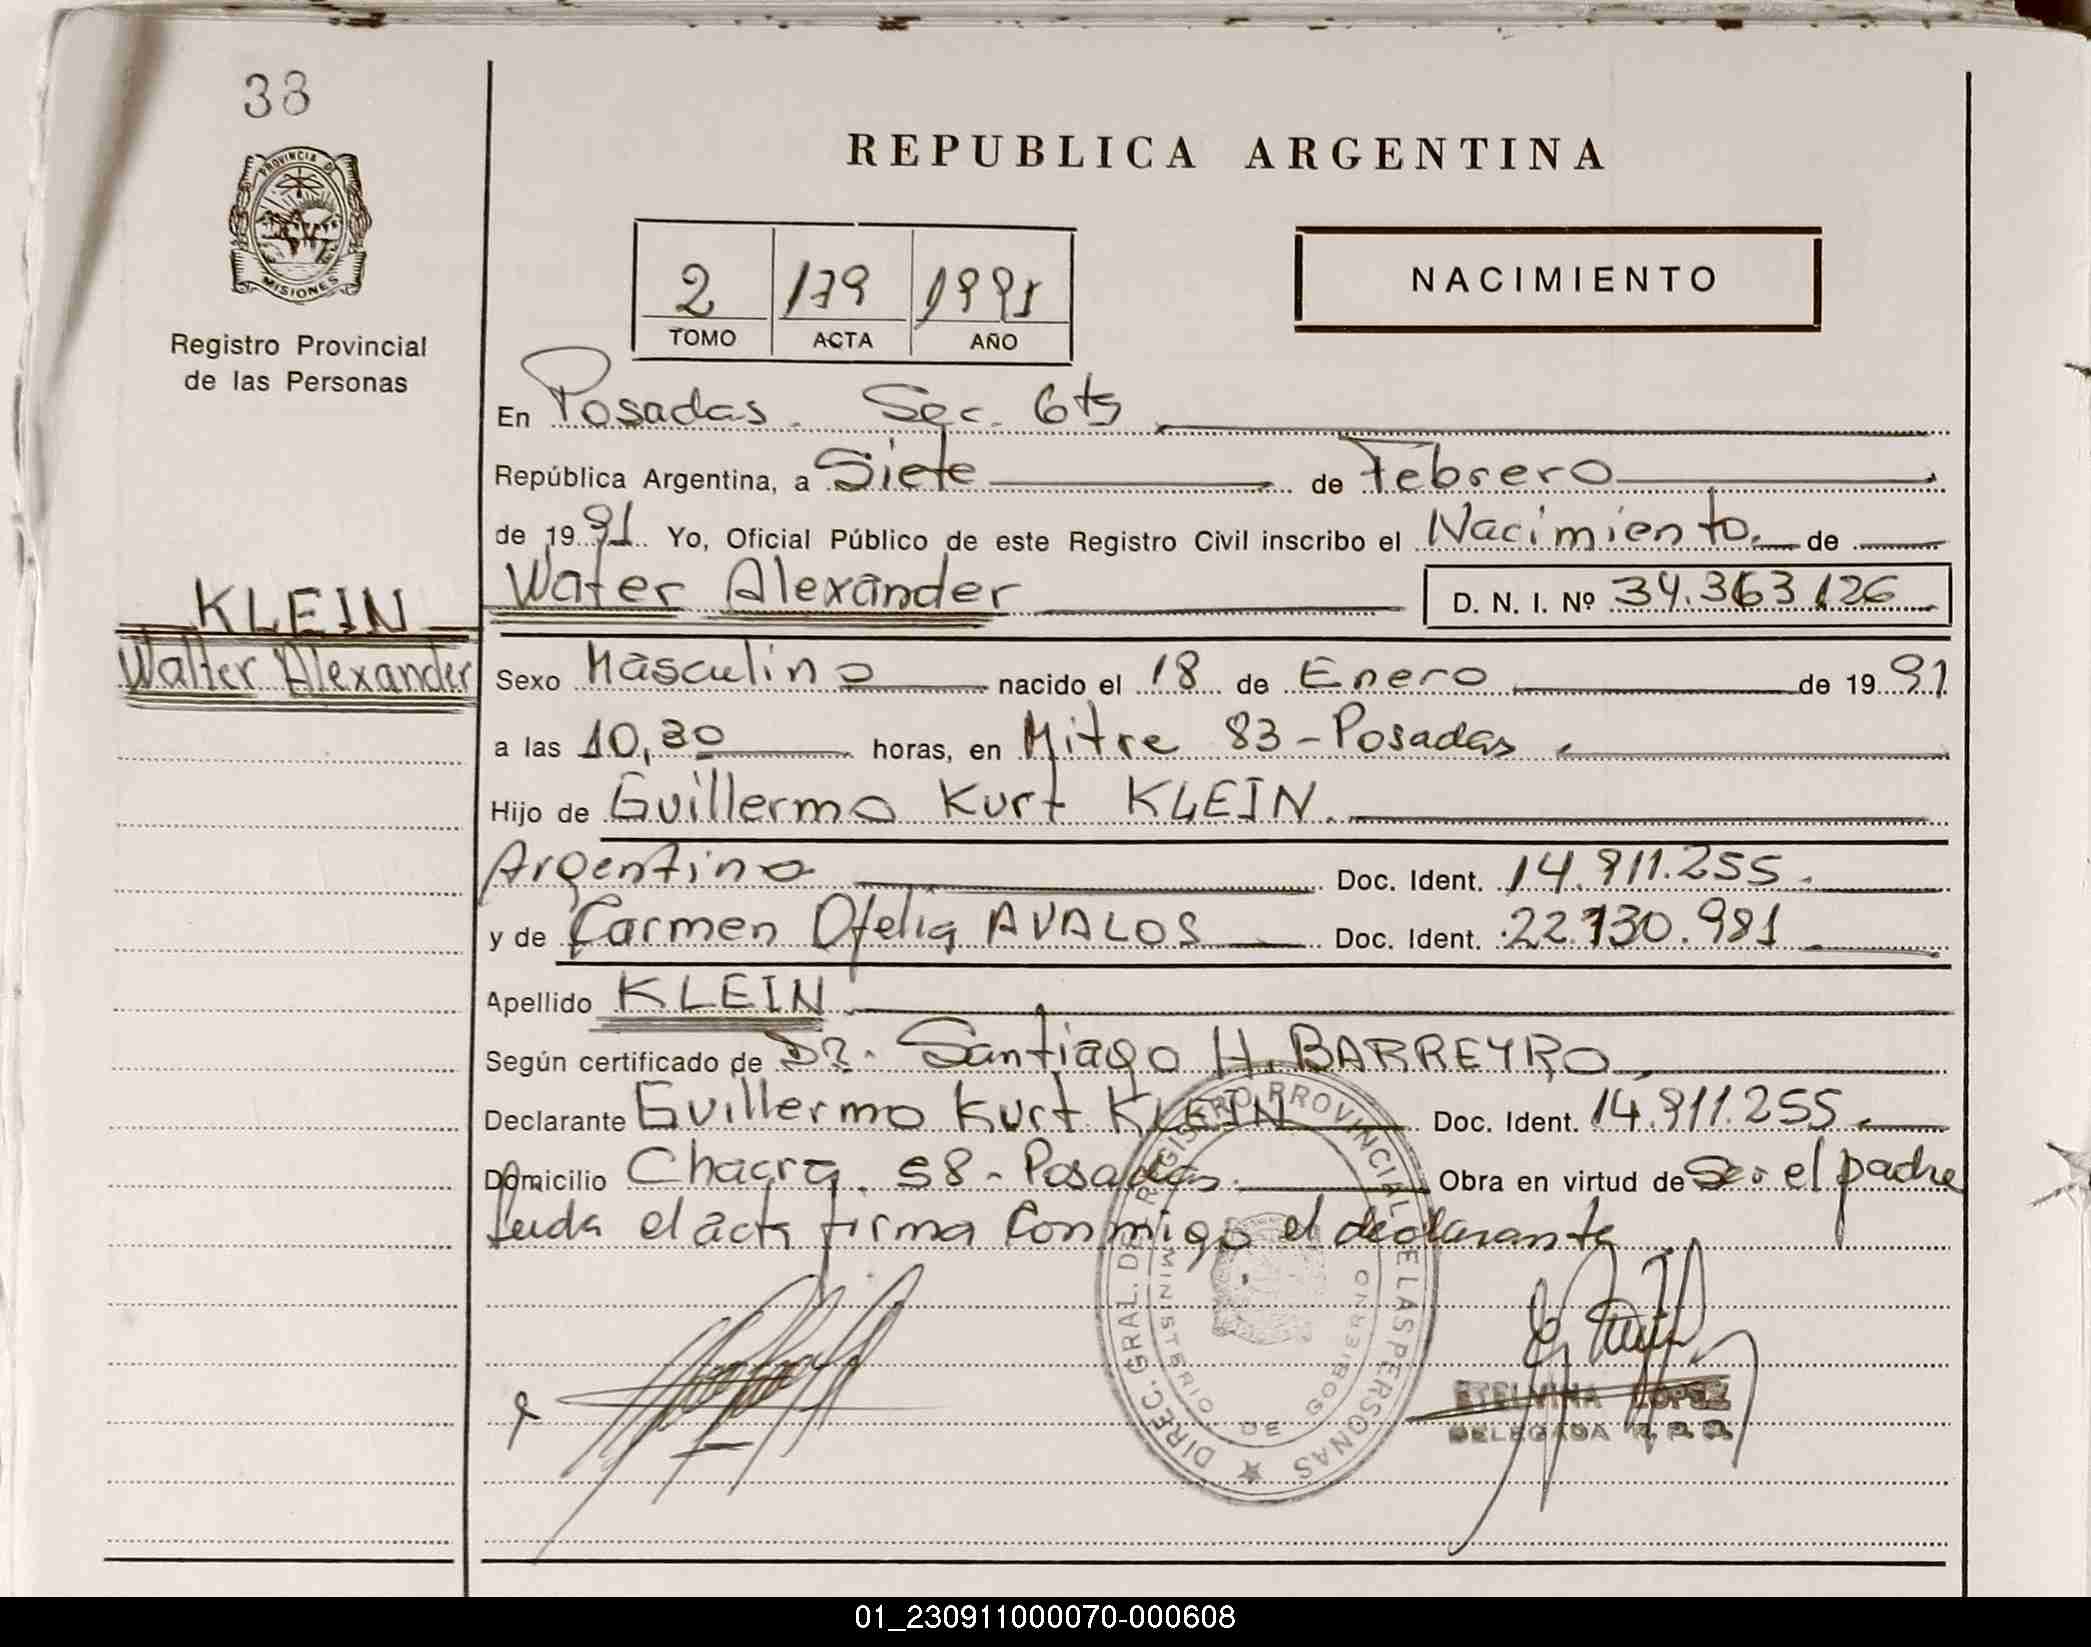 38
PROVINCIA DE
MISIONES
Registro Provincial
de las Personas
REPUBLICA ARGENTINA
2 179 1991
TOMO ACTA AÑO
NACIMIENTO
En Posadas. Sec. 6ta
República Argentina, a Siete de Febrero
de 1991 Yo, Oficial Público de este Registro Civil inscribo el Nacimiento de
KLEIN
Walter Alexander
Water Alexander D. N. I. Nº 34.363.126
Sexo Masculino nacido el 18 de Enero de 1991
a las 10,30 horas, en Mitre 83 - Posadas.
Hijo de Guillermo Kurt KLEIN.
Argentino Doc. Ident. 14.911.255.
y de Carmen Ofelia AVALOS Doc. Ident. 22.730.981
Apellido KLEIN
Según certificado de DR. Santiago H. BARREYRO
Declarante Guillermo Kurt KLEIN Doc. Ident. 14.911.255.
Domicilio Chacra 58 - Posadas. Obra en virtud de Ser el padre
Leida el acta firma conmigo el declarante
DIREC. GRAL. DE REGISTRO PROVINCIAL DE LAS PERSONAS
MINISTERIO DE GOBIERNO
ETELVINA LOPEZ
DELEGADA R. P. P.
01_230911000070-000608